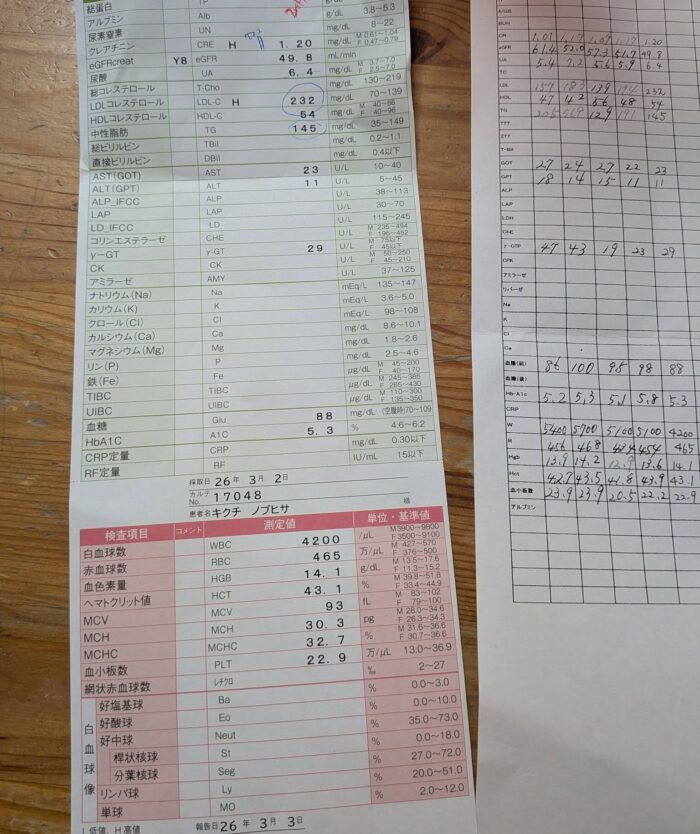 総蛋白 TP g/dL
アルブミン Alb g/dL 3.8~5.3
尿素窒素 UN mg/dL 8~22
クレアチニン CRE H 1.20 mg/dL M 0.61~1.04 F 0.47~0.79
eGFRcreat Y8 eGFR 49.8 mL/min
尿酸 UA 6.4 mg/dL M 3.7~7.0 F 2.5~7.0
総コレステロール T-Cho mg/dL 130~219
LDLコレステロール LDL-C H 232 mg/dL 70~139
HDLコレステロール HDL-C 54 mg/dL M 40~86 F 40~96
中性脂肪 TG 145 mg/dL 35~149
総ビリルビン TBil mg/dL 0.2~1.1
直接ビリルビン DBil mg/dL 0.4以下
AST(GOT) AST 23 U/L 10~40
ALT(GPT) ALT 11 U/L 5~45
ALP_IFCC ALP U/L 38~113
LAP LAP U/L 30~70
LD_IFCC LD U/L 115~245
コリンエステラーゼ CHE U/L M 235~494 F 196~452
γ-GT γ-GT 29 U/L M 75以下 F 45以下
CK CK U/L M 50~250 F 45~210
アミラーゼ AMY U/L 37~125
ナトリウム(Na) Na mEq/L 135~147
カリウム(K) K mEq/L 3.6~5.0
クロール(Cl) Cl mEq/L 98~108
カルシウム(Ca) Ca mg/dL 8.6~10.1
マグネシウム(Mg) Mg mg/dL 1.8~2.6
リン(P) P mg/dL 2.5~4.6
鉄(Fe) Fe μg/dL M 45~200 F 40~170
TIBC TIBC μg/dL M 245~385 F 265~430
UIBC UIBC μg/dL M 110~300 F 135~350
血糖 Glu 88 mg/dL (空腹時)70~109
HbA1C A1C 5.3 % 4.6~6.2
CRP定量 CRP mg/dL 0.30以下
RF定量 RF IU/mL 15以下
採取日 26年 3月 2日
カルテNo. 17048
患者名 キクチ ノブヒサ 様
検査項目 コメント 測定値 単位・基準値
白血球数 WBC 4200 /μL M3900~9800 F3500~9100
赤血球数 RBC 465 万/μL M 427~570 F 376~500
血色素量 HGB 14.1 g/dL M 13.5~17.6 F 11.3~15.2
ヘマトクリット値 HCT 43.1 % M 39.8~51.8 F 33.4~44.9
MCV MCV 93 fL M 83~102 F 79~100
MCH MCH 30.3 pg M 28.0~34.6 F 26.3~34.3
MCHC MCHC 32.7 % M 31.6~36.6 F 30.7~36.6
血小板数 PLT 22.9 万/μL 13.0~36.9
網状赤血球数 レチクロ ‰ 2~27
白血球像
好塩基球 Ba % 0.0~3.0
好酸球 Eo % 0.0~10.0
好中球 Neut % 35.0~73.0
桿状核球 St % 0.0~18.0
分葉核球 Seg % 27.0~72.0
リンパ球 Ly % 20.0~51.0
単球 MO % 2.0~12.0
L 低値、H 高値 報告日 26年 3月 3日
A/GB
BUN
CR 1.01 1.17 1.09 1.17 1.20
eGFR 61.4 52.0 57.3 51.7 49.8
UA 5.4 7.2 5.6 5.9 6.4
TC
LDL 157 183 139 194 232
HDL 47 42 56 48 54
TG 205 569 129 191 145
TTT
ZTT
T-Bil
GOT 27 24 27 22 23
GPT 18 14 15 11 11
ALP
LAP
LDH
ChE
γ-GTP 47 43 19 23 29
CPK
アミラーゼ
リパーゼ
Na
K
Cl
Ca
血糖(前) 86 100 95 98 88
血糖(後)
Hb-A1c 5.2 5.3 5.1 5.8 5.3
CRP
W 5400 5700 5100 5100 4200
R 456 468 454 465
Hgb 13.9 14.2 12.9 13.6 14.1
Hct 42.7 43.5 41.8 43.9 43.1
血小板数 23.9 23.9 20.5 22.2 22.9
アルブミン